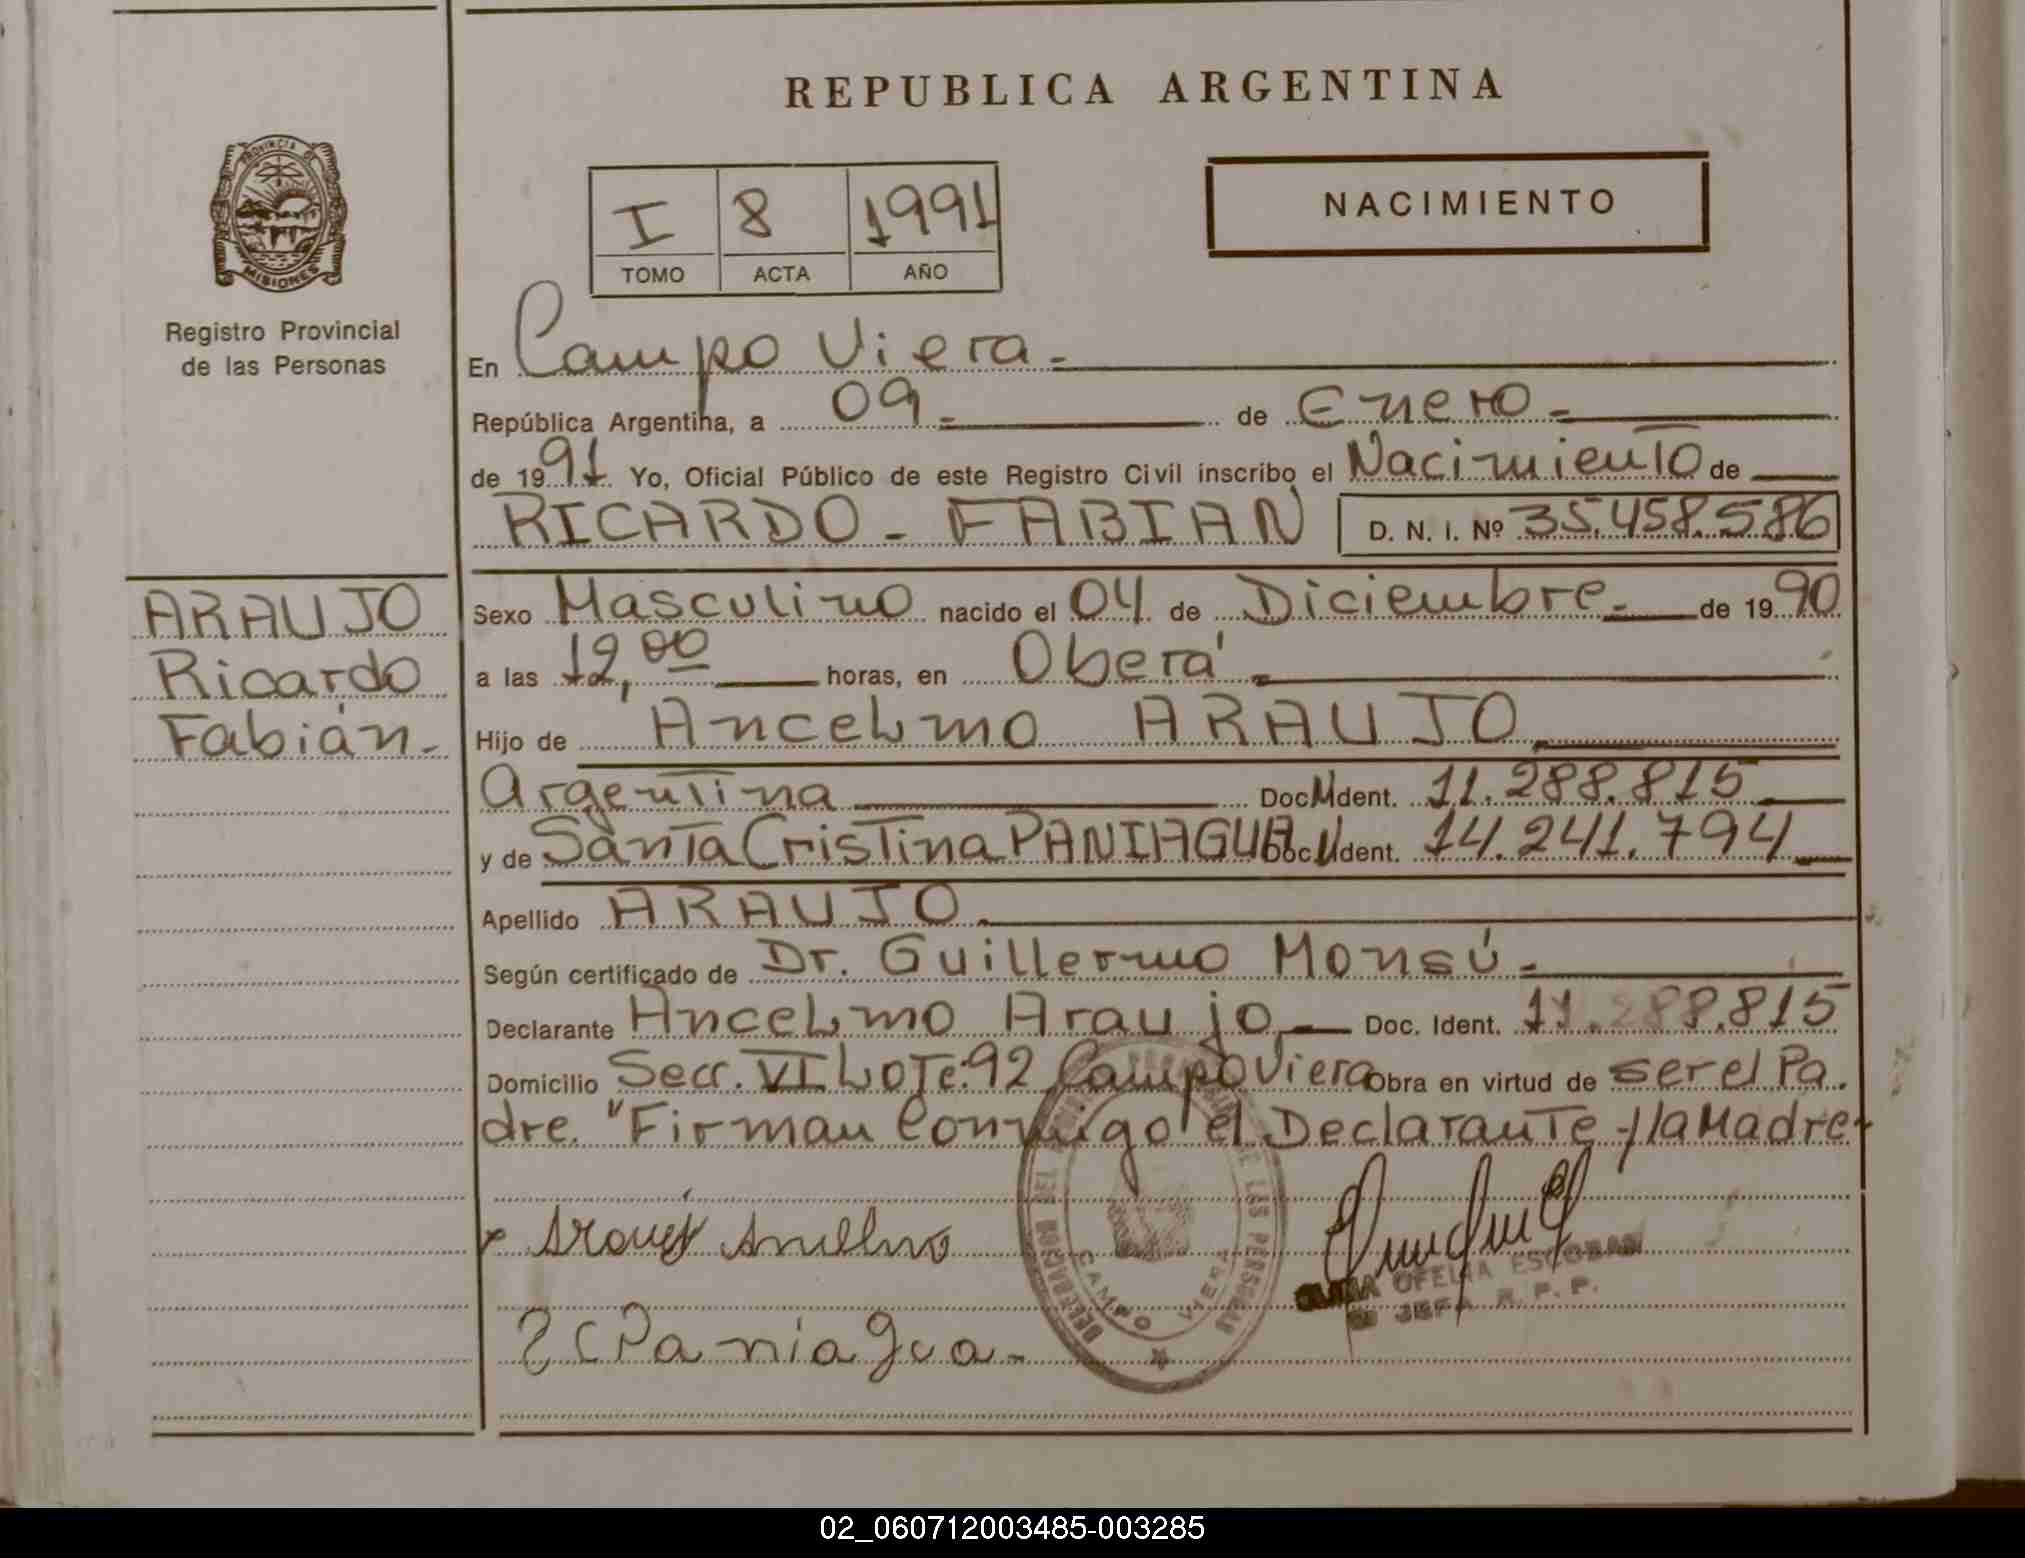 REPUBLICA ARGENTINA
PROVINCIA DE
MISIONES
Registro Provincial
de las Personas
I 8 1991
TOMO ACTA AÑO
NACIMIENTO
En Campo Viera.
República Argentina, a 09. de Enero.
de 1991. Yo, Oficial Público de este Registro Civil inscribo el Nacimiento de
RICARDO - FABIAN D. N. I. Nº 35.458.586
ARAUJO
Ricardo
Fabián.
Sexo Masculino nacido el 04 de Diciembre. de 1990
a las 12,00 horas, en Oberá
Hijo de Ancelmo ARAUJO
Argentina Doc M dent. 11.288.815
y de Santa Cristina PANIAGUA Doc U dent. 14.241.794
Apellido ARAUJO.
Según certificado de Dr. Guillermo Monsú.
Declarante Ancelmo Araujo Doc. Ident. 11.288.815
Domicilio Secc. VI Lote: 92 Campo Viera Obra en virtud de ser el Pa.
dre. "Firman Conmigo el Declarante y la Madre.
Araujo Anselmo
S C Paniagua.
DELEGACION DEL REGISTRO PROVINCIAL DE LAS PERSONAS
CAMPO VIERA
OFELIA ESCOBAR
JEFA R. P. P.
02_060712003485-003285